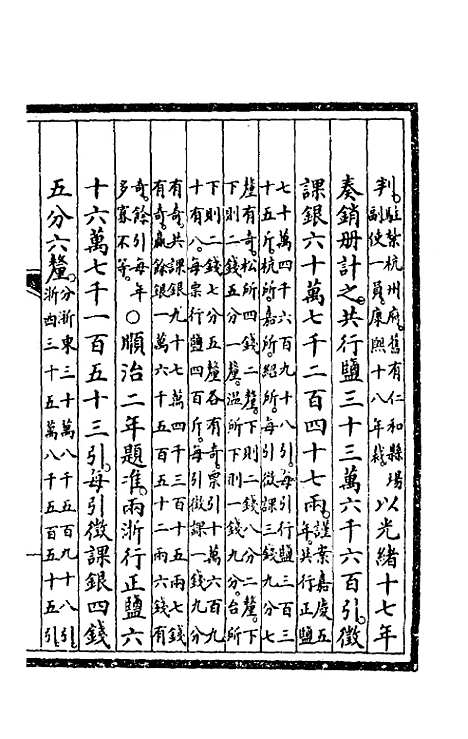 判。駐紮杭州府。舊有仁和縣場副使一員。康熙十八年裁。以光緒十七年
奏銷册計之。共行鹽三十三萬六千六百引。徵
課銀六十萬七千二百四十七兩。謹案嘉慶五年。共行正鹽
七十萬四千六百九十八引。每引行鹽三百三
十五斤。杭所。嘉所。紹所。每引徵課三錢九分七
釐有奇。松所四錢二釐。下則二錢八分二釐。下
下則二錢五分一釐。溫所下則一錢九分。台所
下則二錢七分五釐各有奇。票引十萬六百九
十有八。每票行鹽四百斤。每引徵課一錢九分
有奇。共課銀九十七萬四千三百十五兩七錢
有奇。贏餘銀一萬六千五百五十二兩六錢有
奇。餘引每年多寡不等。○順治二年題准。兩浙行正鹽六
十六萬七千一百五十三引。每引徵課銀四錢
五分六釐。分浙東三十萬八千五百九十八引。浙西三十五萬八千五百五十五引。